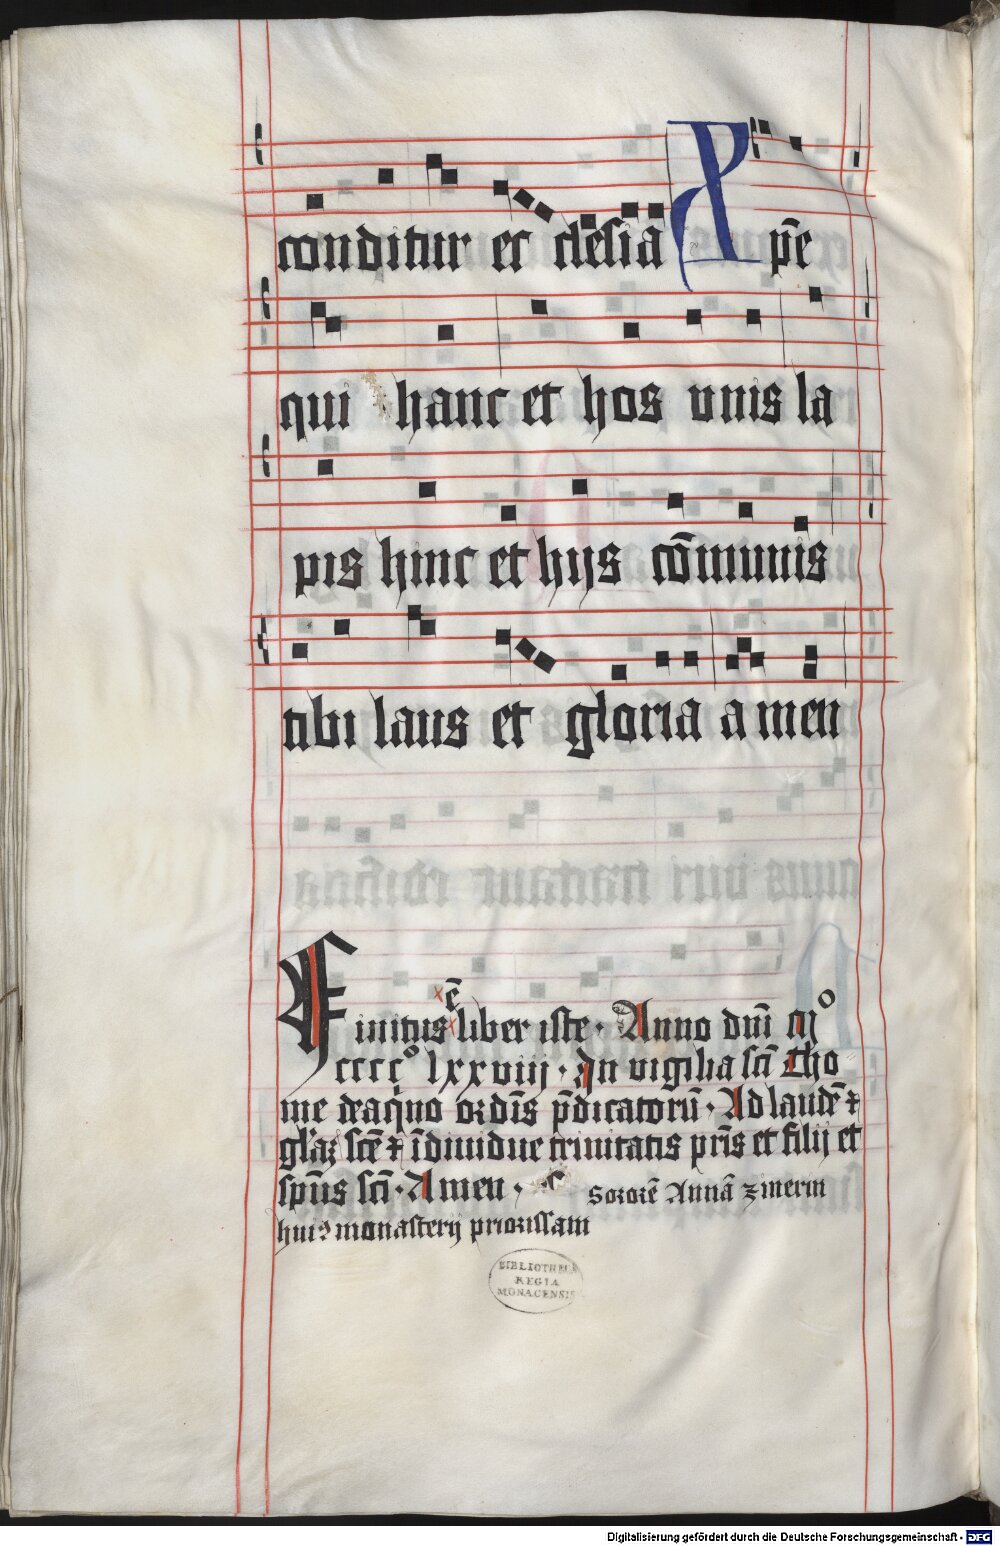 conditur ec clesia Xp̄e
qui hanc et hos vnis la
pis hinc et hijs cōmunis
tibi laus et gloria a men
Finitus ē liber iste. Anno dn̄i Mº
ccccº lxxviij. In vigilia sc̄i Tho
me de aquino ordīs p̄dicatorū. Ad laudē ⁊
gl̄aꝫ sc̄e ⁊ īdiuidue trinitatis pr̄is et filij et
sp̄us sc̄i. Amen.
Sororē Annā Zinerin
huiꝰ monasterij priorissam
BIBLIOTHECA
REGIA
MONACENSIS
Digitalisierung gefördert durch die Deutsche Forschungsgemeinschaft - DFG